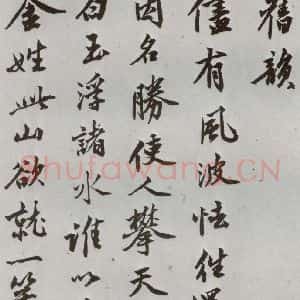 舊韻
儘有風波怯往
因名勝使人攀天
白玉浮諸水誰以
金姓此山欲就一
Shufawang.CN